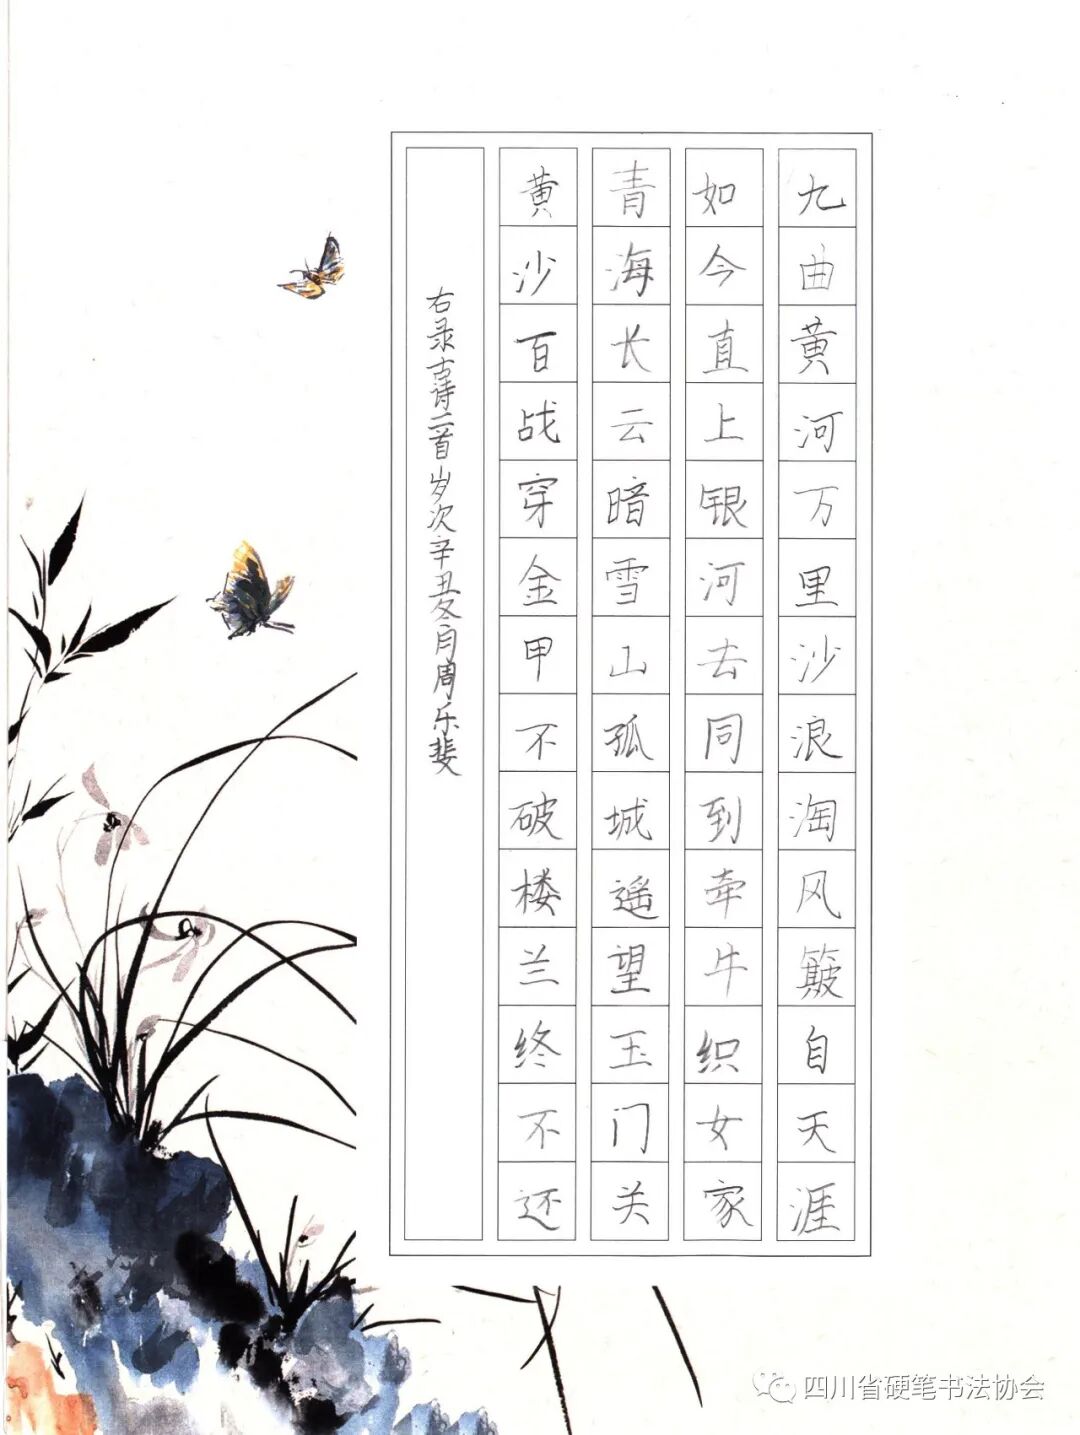 九曲黄河万里沙浪淘风簸自天涯
如今直上银河去同到牵牛织女家
青海长云暗雪山孤城遥望玉门关
黄沙百战穿金甲不破楼兰终不还
右录古诗二首岁次辛丑冬月周乐斐
四川省硬笔书法协会